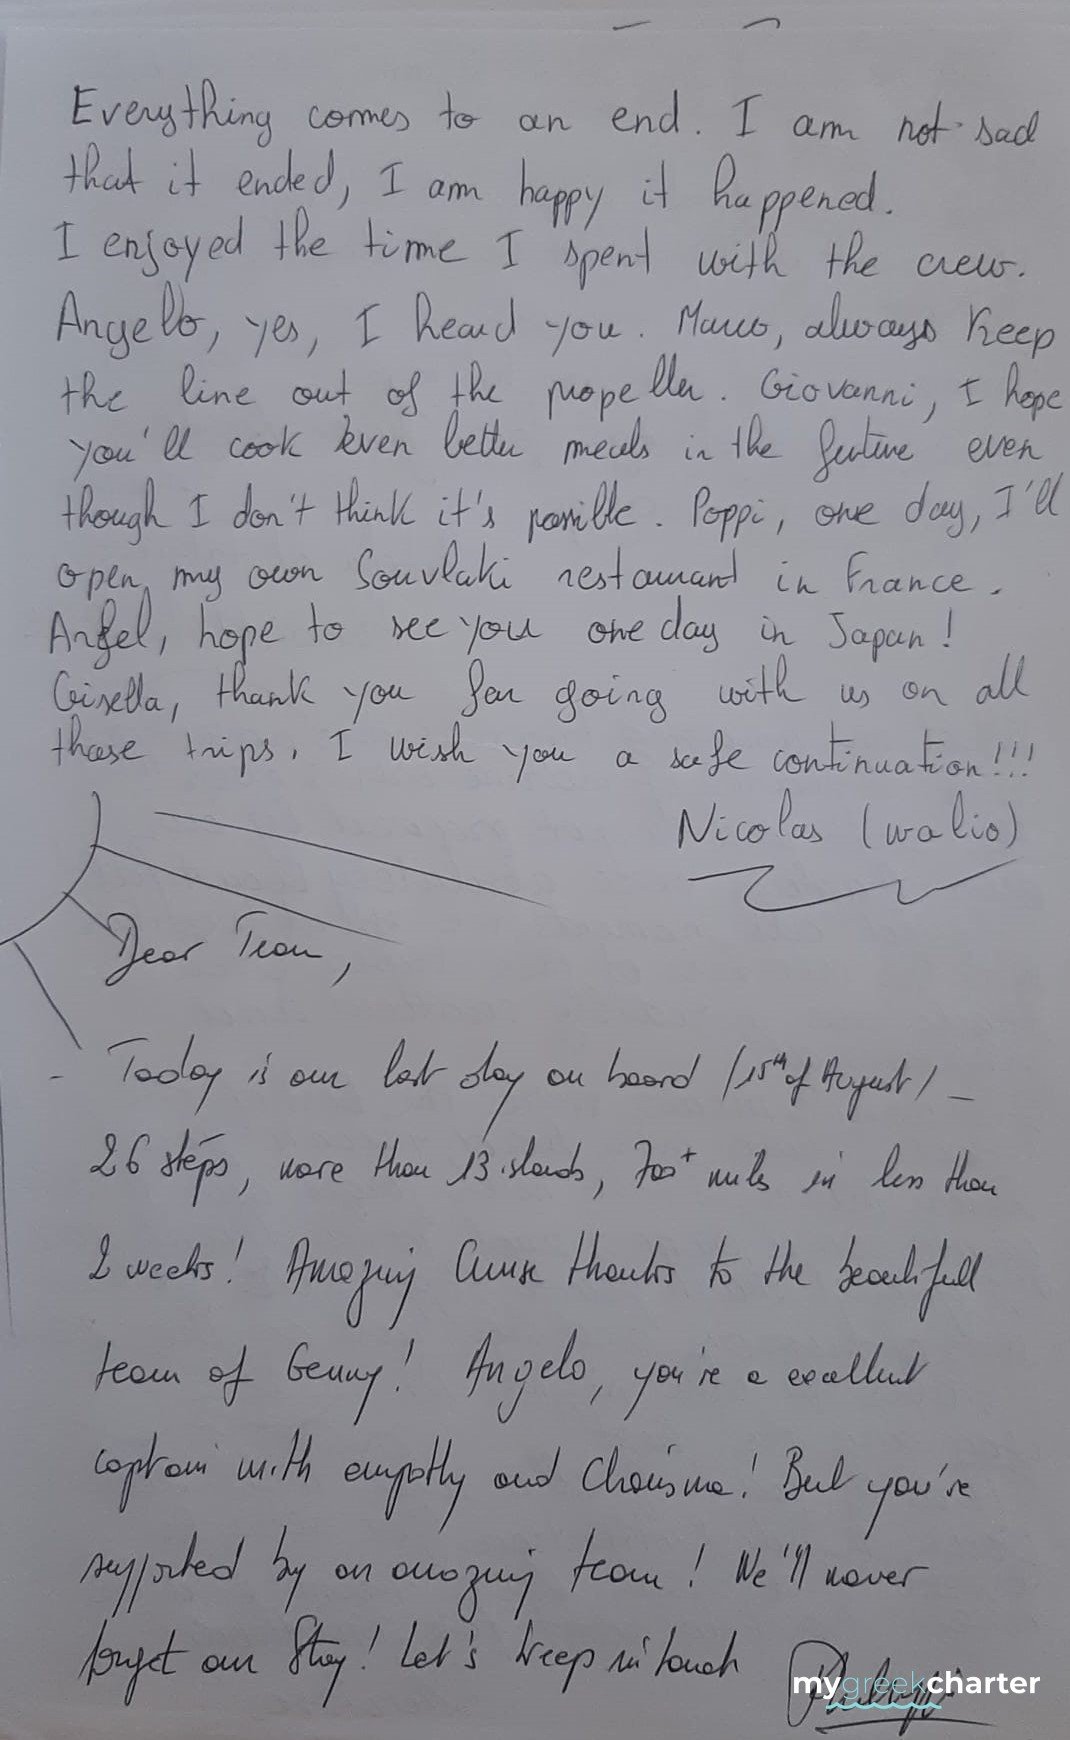 Everything comes to an end. I am not sad
that it ended, I am happy it happened.
I enjoyed the time I spent with the crew.
Angelo, yes, I heard you. Marco, always keep
the line out of the propeller. Giovanni, I hope
you'll cook even better meals in the future even
though I don't think it's possible. Poppi, one day, I'll
open my own Souvlaki restaurant in France.
Angel, hope to see you one day in Japan!
Gisella, thank you for going with us on all
those trips, I wish you a safe continuation!!!
Nicolas (walio)
Dear Team,
- Today is our last day on board (15th of August) -
26 steps, more than 13 islands, 700+ miles in less than
2 weeks! Amazing Cruise thanks to the beautifull
team of Genny! Angelo, you're a excellent
captain with empathy and Charisma! But you're
supported by an amazing team! We'll never
forget our Stay! Let's keep in touch
mygreekcharter